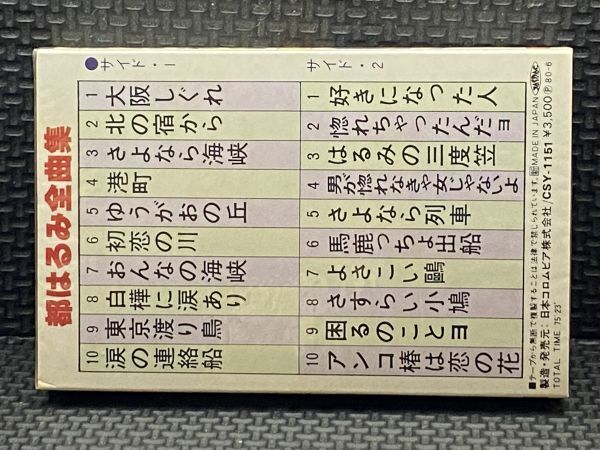 都はるみ全曲集
●サイド・1
1 大阪しぐれ
2 北の宿から
3 さよなら海峡
4 港町
5 ゆうがおの丘
6 初恋の川
7 おんなの海峡
8 白樺に涙あり
9 東京渡り鳥
10 涙の連絡船
サイド・2
1 好きになった人
2 惚れちゃったんだョ
3 はるみの三度笠
4 男が惚れなきゃ女じゃないよ
5 さよなら列車
6 馬鹿っちょ出船
7 よさこい鷗
8 さすらい小鳩
9 困るのことヨ
10 アンコ椿は恋の花
■テープから無断で複製することは法律で禁じられています。
MADE IN JAPAN Ⓟ80-6
製造・発売元: 日本コロムビア株式会社/CSY-1151 ¥3,500
TOTAL TIME 75'23"